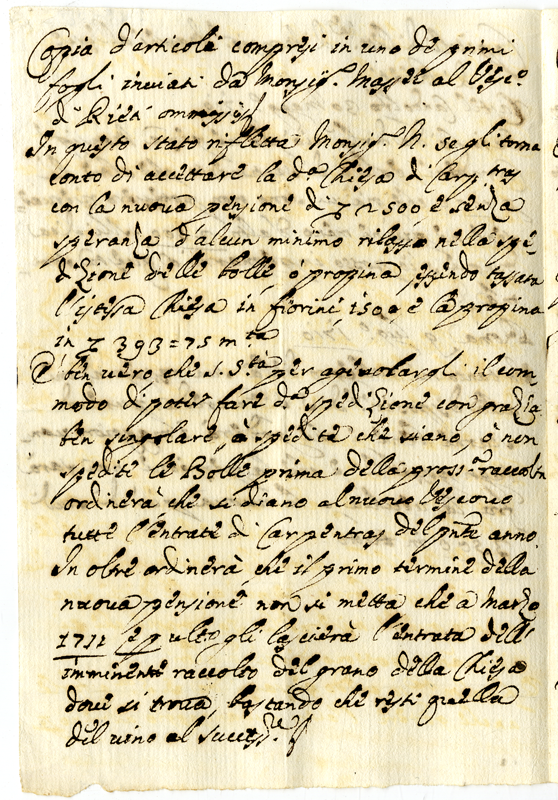 Copia d'articoli compresi in uno de primi
fogli inviati da Monsig.r Massei al Vesc.o
di Rieti ommissis
In questo stato rifletta Monsig.r N. se gli torna
conto di accettare la d.a Chiesa di Carp.tras
con la nuova pensione di 2500 e senza
speranza d'alcun minimo rilasso nella spe-
dizione delle bolle, ò propina essendo tassata
l'istessa Chiesa in fiorini 1500 e la propina
in 393=75 m.ta
È ben vero che S. S.tà per agevolargli il com-
modo di poter fare d.a spedizione con grazia
ben singolare, ò spedite che siano, ò non
spedite le Bolle prima della pross.a raccolta
ordinerà che si diano al nuovo Vescovo
tutte l'entrate di Carpentras del pnte anno
In oltre ordinerà che il primo termine della
nuova pensione non si metta che a Marzo
1711 e p ult.o gli lascierà l'entrata dell'
imminente raccolto del grano della Chiesa
dove si trova, bastando che resti quella
del vino al success.re